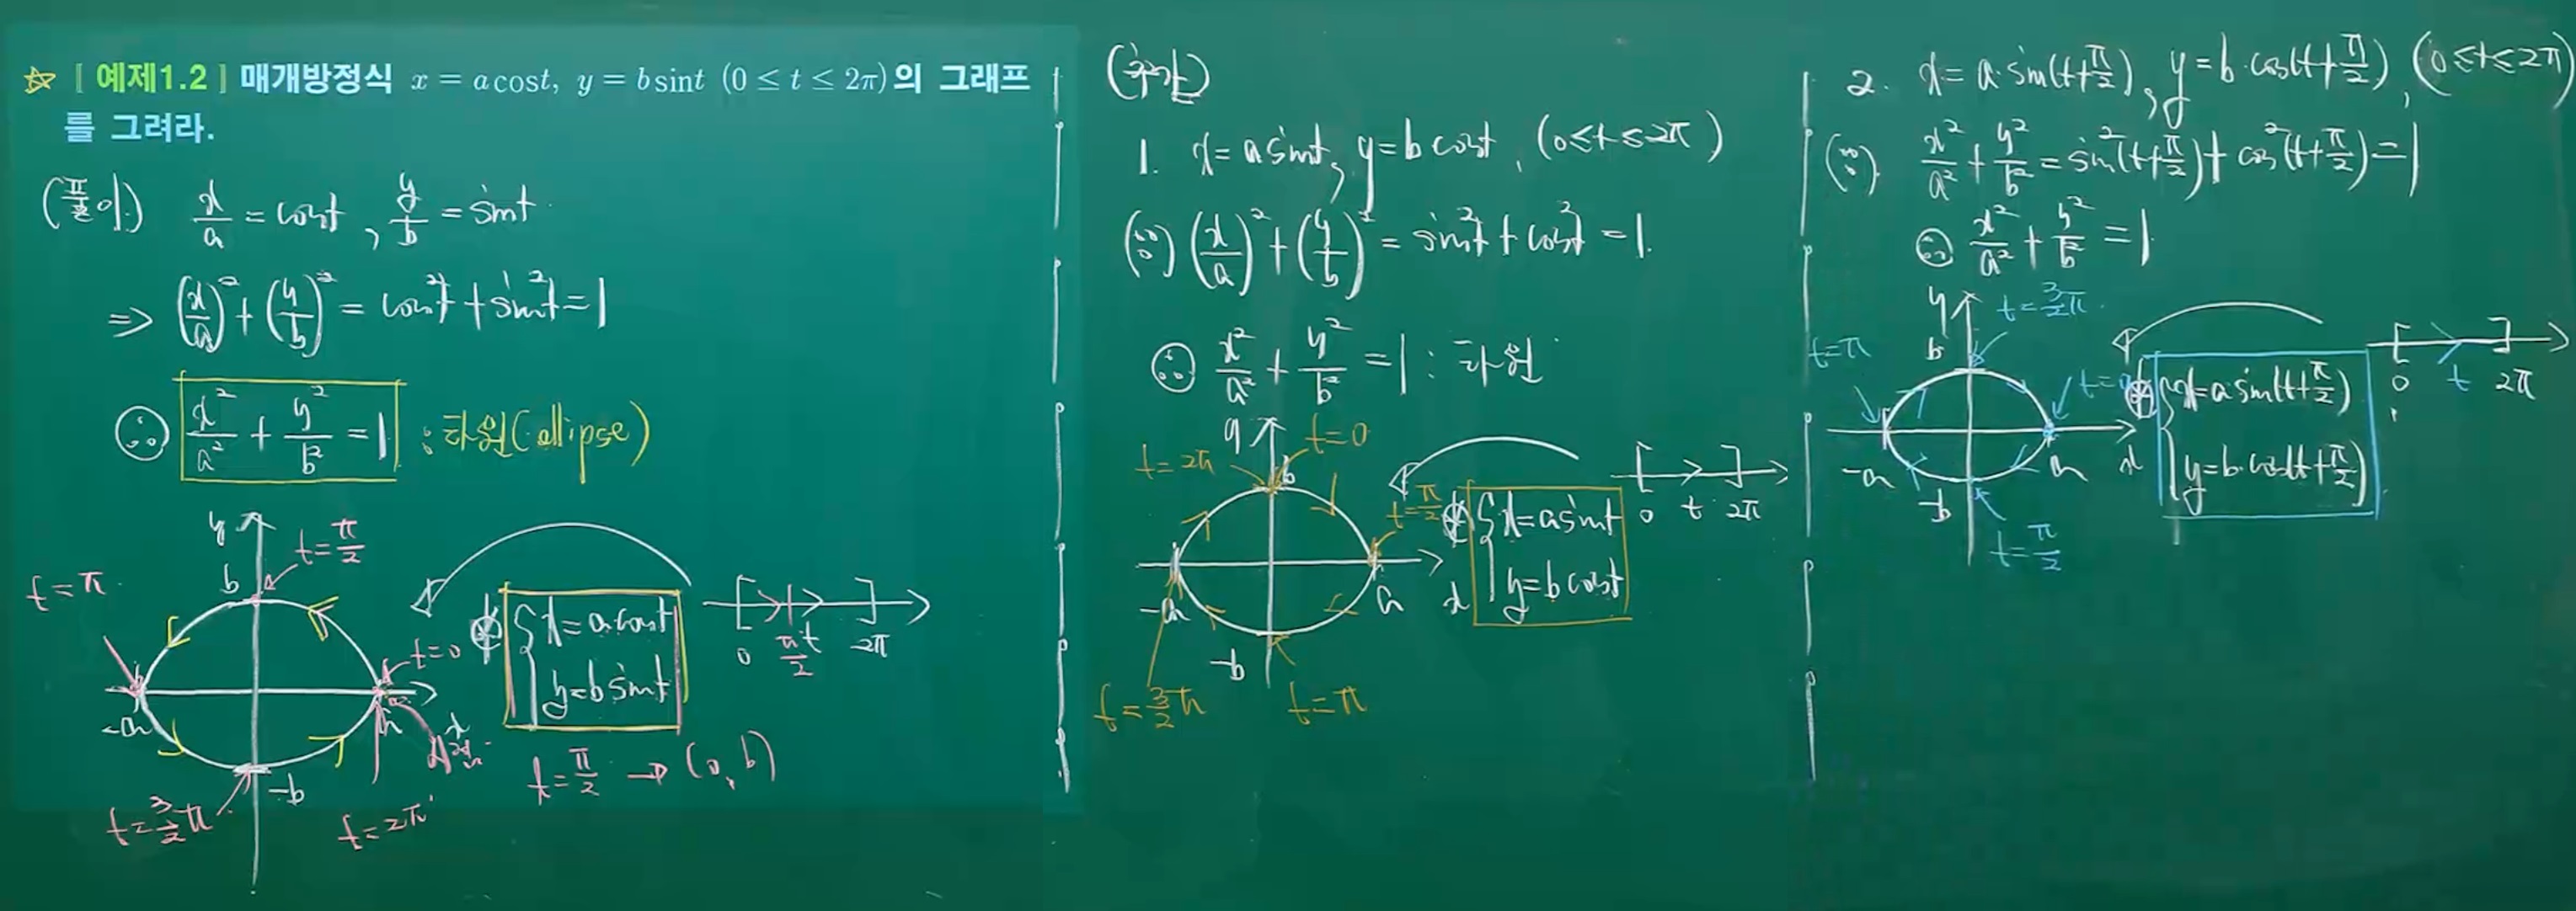 ☆ [ 예제1.2 ] 매개방정식 x = a cost, y = b sint (0 ≤ t ≤ 2π)의 그래프
를 그려라.
(풀이) x/a = cost, y/b = sint
⇒ (x/a)² + (y/b)² = cos²t + sin²t = 1
∴ x²/a² + y²/b² = 1 : 타원(ellipse)
y
t = π/2
b
t = π
t = 0
-a
a
x
시점
-b
t = 3/2 π
t = 2π
⊛ { x = a cost
y = b sint
0
π/2
t
2π
t = π/2 → (0, b)
(추가)
1. x = a sint, y = b cost, (0 ≤ t ≤ 2π)
(∵) (x/a)² + (y/b)² = sin²t + cos²t = 1.
∴ x²/a² + y²/b² = 1 : 타원
y
t = 0
t = 2π
b
t = π/2
-a
a
x
-b
t = 3/2 π
t = π
⊛ { x = a sint
y = b cost
0
t
2π
2. x = a·sin(t+π/2), y = b·cos(t+π/2), (0 ≤ t ≤ 2π)
(∵) x²/a² + y²/b² = sin²(t+π/2) + cos²(t+π/2) = 1
∴ x²/a² + y²/b² = 1
y
t = 3/2 π
b
t = π
t = 0
-a
a
x
-b
t = π/2
⊛ { x = a sin(t+π/2)
y = b·cos(t+π/2)
0
t
2π